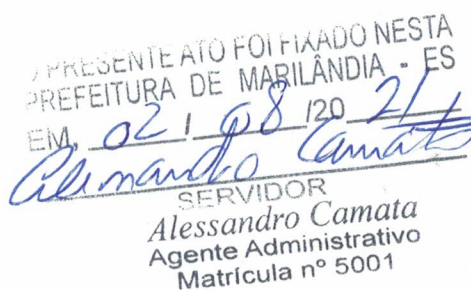 O PRESENTE ATO FOI FIXADO NESTA
PREFEITURA DE MARILÂNDIA - ES
EM, 02 / 08 /20 21
Alessandro Camata
SERVIDOR
Alessandro Camata
Agente Administrativo
Matrícula nº 5001